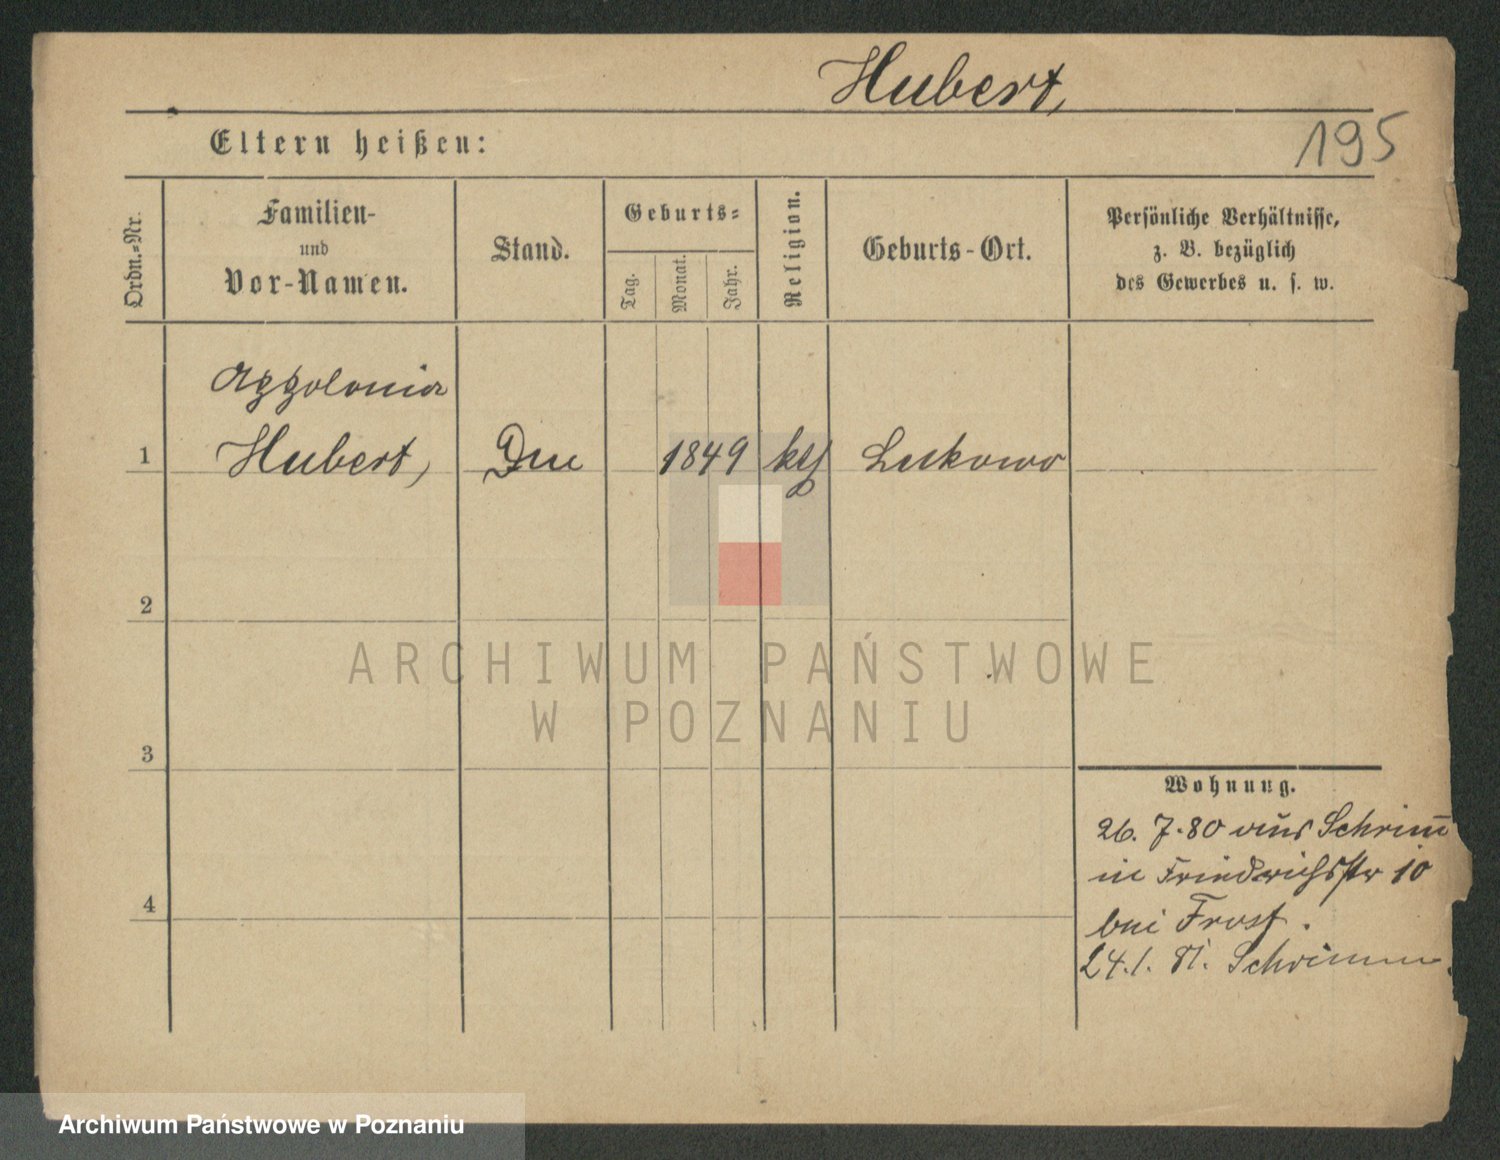 Hubert,
195
Eltern heißen:
Ordn.-Nr.
Familien-
und
Vor-Namen.
Stand.
Geburts-
Tag.
Monat.
Jahr.
Religion.
Geburts-Ort.
Persönliche Verhältnisse,
z. B. bezüglich
des Gewerbes u. s. w.
Appolonia
1 Hubert, 1849 kth Lukowo
2
3
4
Wohnung.
26. 7. 80 aus Schrim̅
in Friedrichsstr 10
bei Frost.
24. 1. 81. Schrimm.
ARCHIWUM PAŃSTWOWE
W POZNANIU
Archiwum Państwowe w Poznaniu